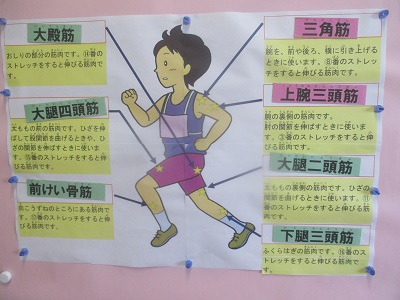 大殿筋
おしりの部分の筋肉です。⑭番の
ストレッチをすると伸びる筋肉で
す。
大腿四頭筋
太ももの前の筋肉です。ひざを伸
ばして股関節を曲げるときや、ひ
ざの関節を伸ばすときに使いま
す。⑮番のストレッチをすると伸
びる筋肉です。
前けい骨筋
向こうずねのところにある筋肉で
す。⑰番のストレッチをすると伸
びる筋肉です。
三角筋
腕を、前や後ろ、横に引き上げる
ときに使います。⑧番のストレッ
チをすると伸びる筋肉です。
上腕三頭筋
腕の裏側の筋肉です。
肘の関節を伸ばすときに使いま
す。③番のストレッチをすると伸
びる筋肉です。
大腿二頭筋
太ももの裏側の筋肉です。ひざの
関節を曲げるときに使います。⑪
番のストレッチをすると伸びる筋
肉です。
下腿三頭筋
ふくらはぎの筋肉です。⑯番のス
トレッチをすると伸びる筋肉で
す。